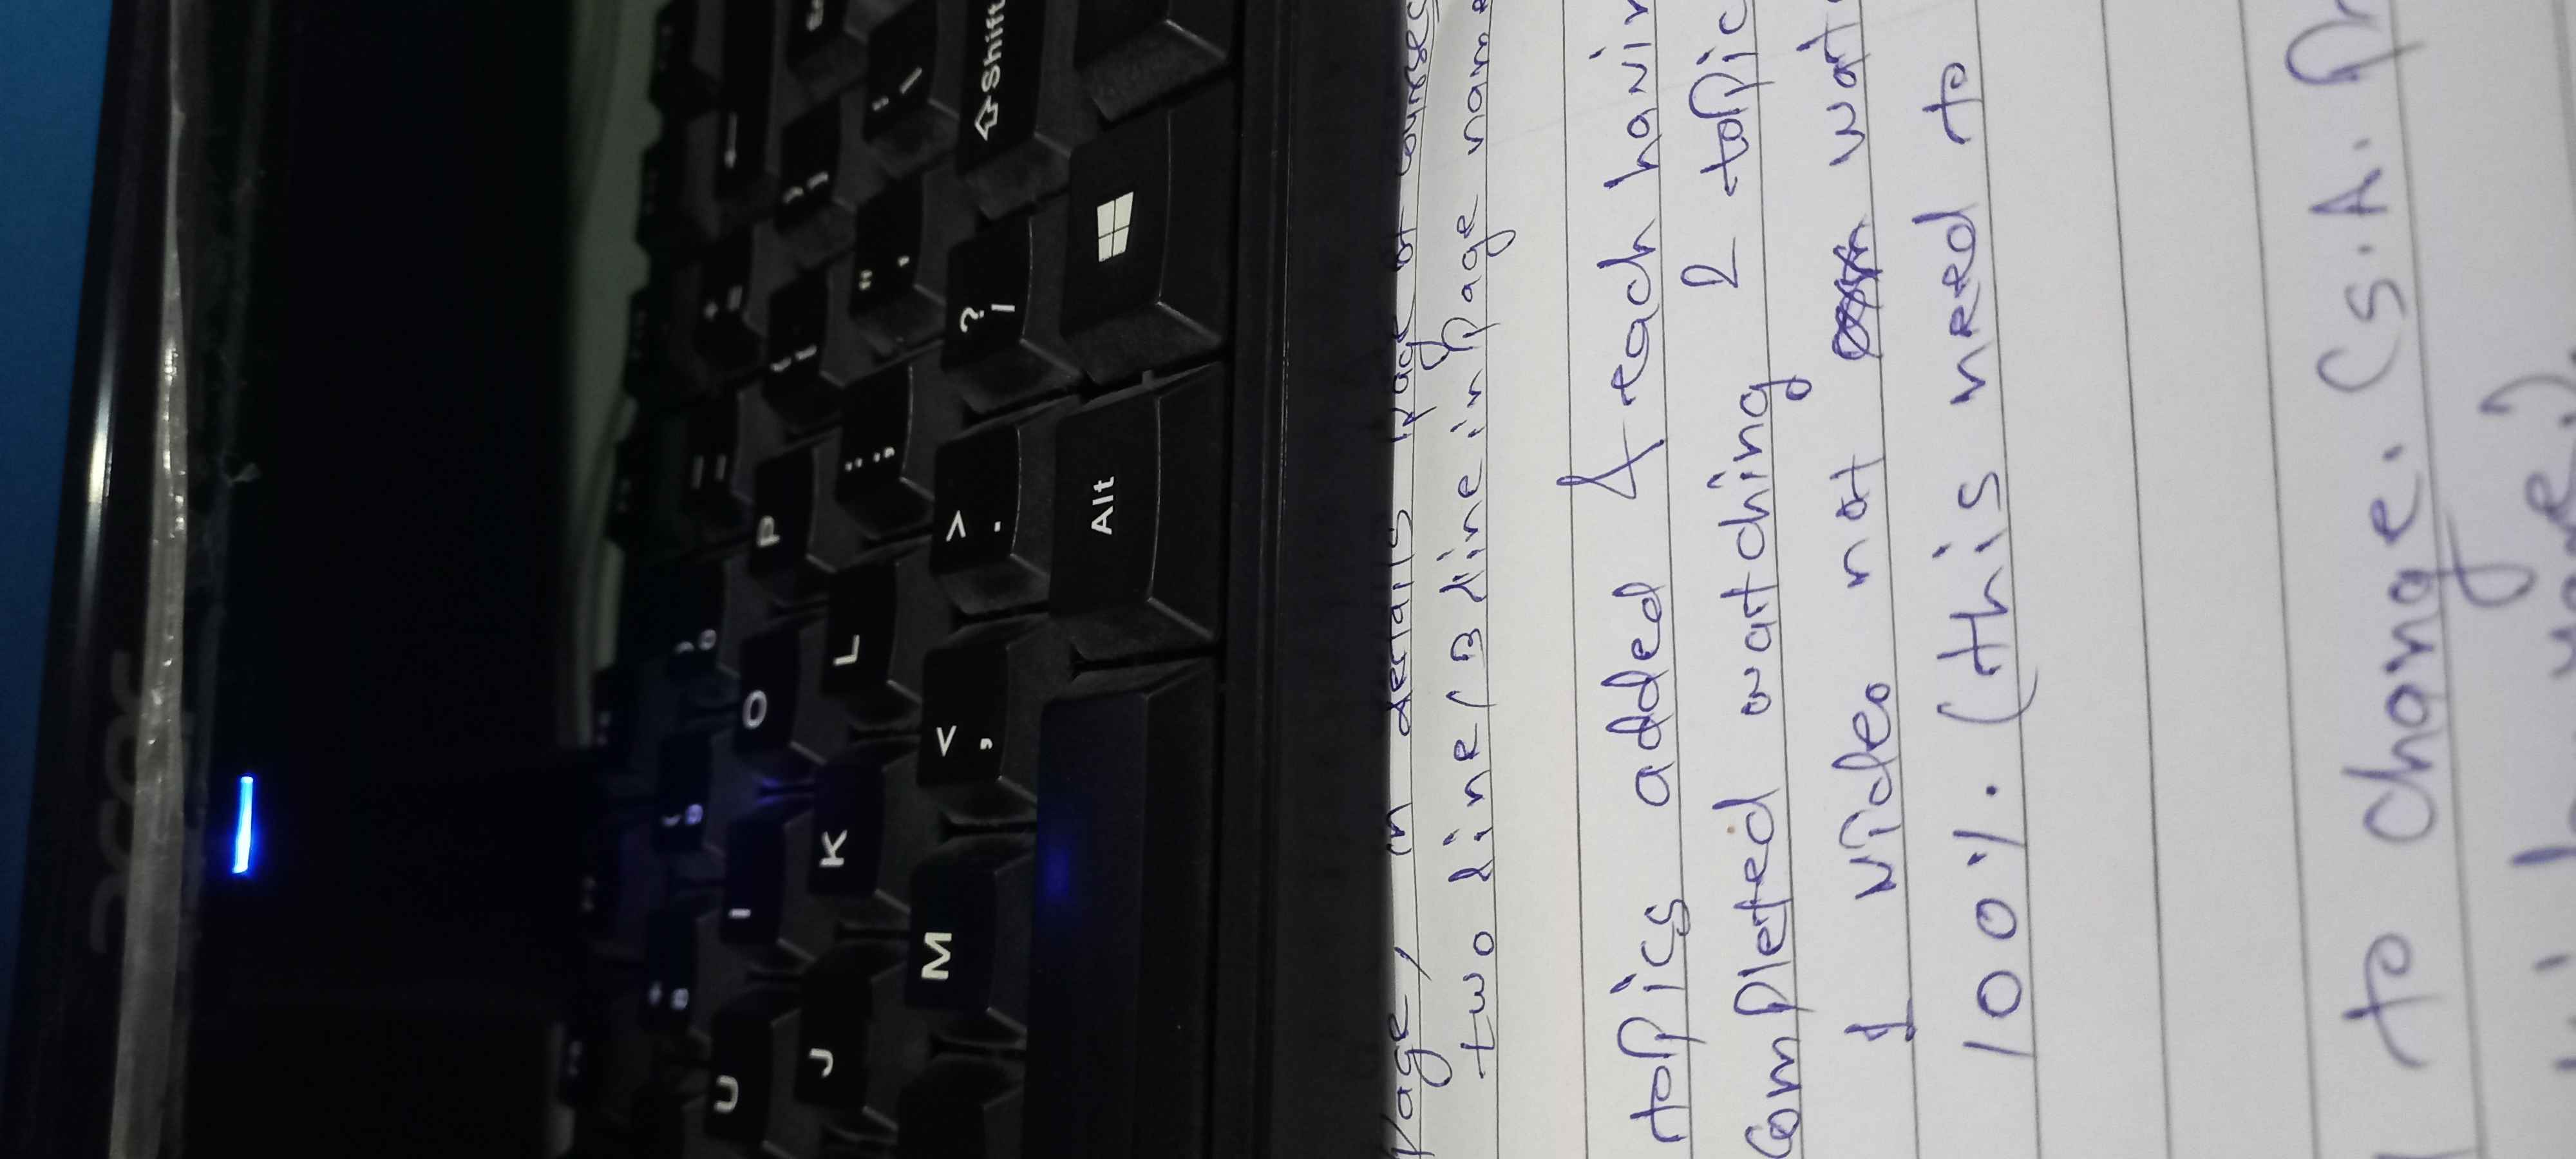 acer
8
( 9
) 0
U I O P
J K L : ; " '
M < , > . ? / Shift
Alt
Page, in details page of courses
two line / 3 line in Page name
topics added & each havin
completed watching 2 topic
1 video not wat
100%. (this need to
to change. (S.A. Pr